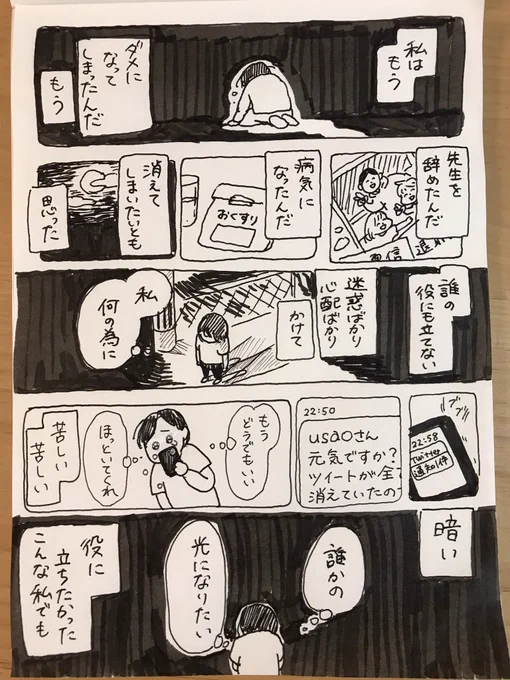 私は
もう
ダメに
なって
しまったんだ
もう
先生を
辞めたんだ
病気に
なったんだ
おくすり
消えて
しまいたいとも
思った
誰の
役にも立てない
迷惑ばかり
心配ばかり
かけて
私
何の為に
ブブッ
22:58
twitter
通知1件
22:50
usaoさん
元気ですか?
ツイートが全
消えていたの
もう
どうでもいい
ほっといてくれ
苦しい
苦しい
暗い
誰かの
光になりたい
役に
立ちたかった
こんな私でも